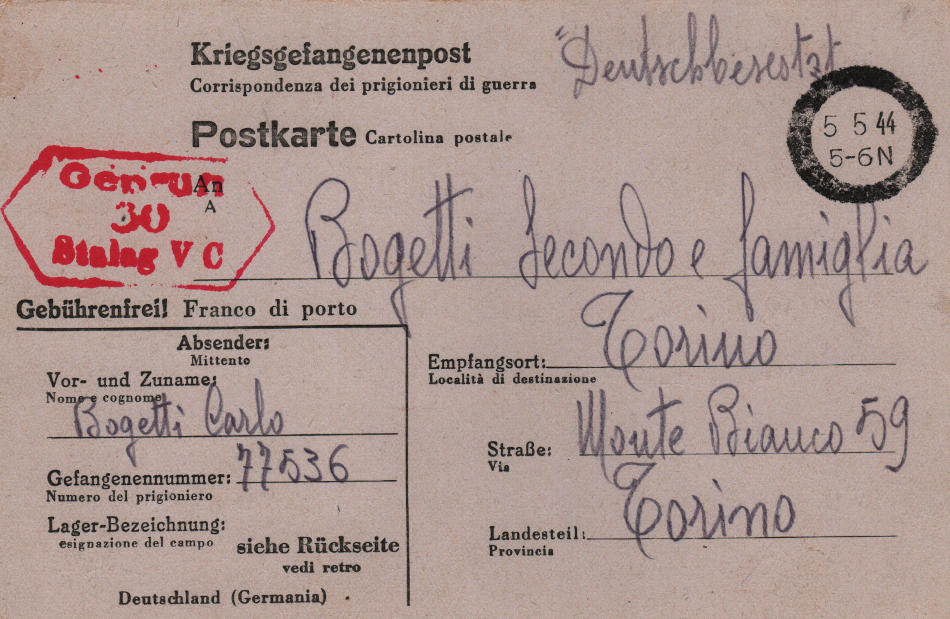 Kriegsgefangenenpost
Corrispondenza dei prigionieri di guerra
"Deutschbesetzt
Postkarte Cartolina postale
5 5 44
5-6 N
Geprüft
30
Stalag V C
An
A
Bogetti Secondo e famiglia
Gebührenfrei! Franco di porto
Absender:
Mittente
Vor- und Zuname:
Nome e cognome
Bogetti Carlo
Gefangenennummer: 77536
Numero del prigioniero
Lager-Bezeichnung:
esignazione del campo
siehe Rückseite
vedi retro
Deutschland (Germania)
Empfangsort: Torino
Località di destinazione
Straße: Monte Bianco 59
Via
Landesteil: Torino
Provincia